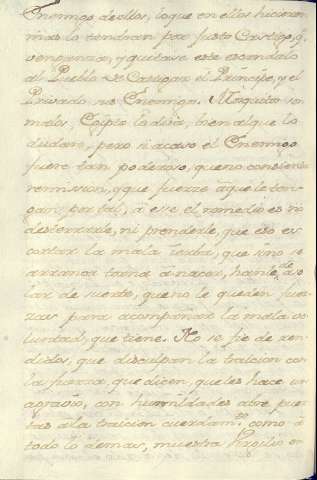 Enemigo de ellos, lo que en ellos hicieren
mas lo tendran por justo Castigo, q.
venganza, y quitase este escandalo
al Pueblo de Castigar el Principe, y el
Privado sus Enemigos.
malos, lo dira, bien al que lo
dudare, pero si acaso el Enemigo
fuere tan poderoso, que no consienta
remission, y que fuerze à que le ten
gan por tal, à ese el remedio es no
desterrarle, ni prenderle, que eso es
cortar la mala Yerba, que sino se
arranca torna à nacer, hanle de aso
lar de suerte, que no le queden fuer
zas para acompañar la mala vo
luntad, que tiene. No se fie de ren
didos, que disculpan la traicion con
la fuerza, que dicen, que les hace un
agravio, con humildades abre puer
tas à la traicion cuerdam.te como à
todo lo demas, muestra Virgilio en